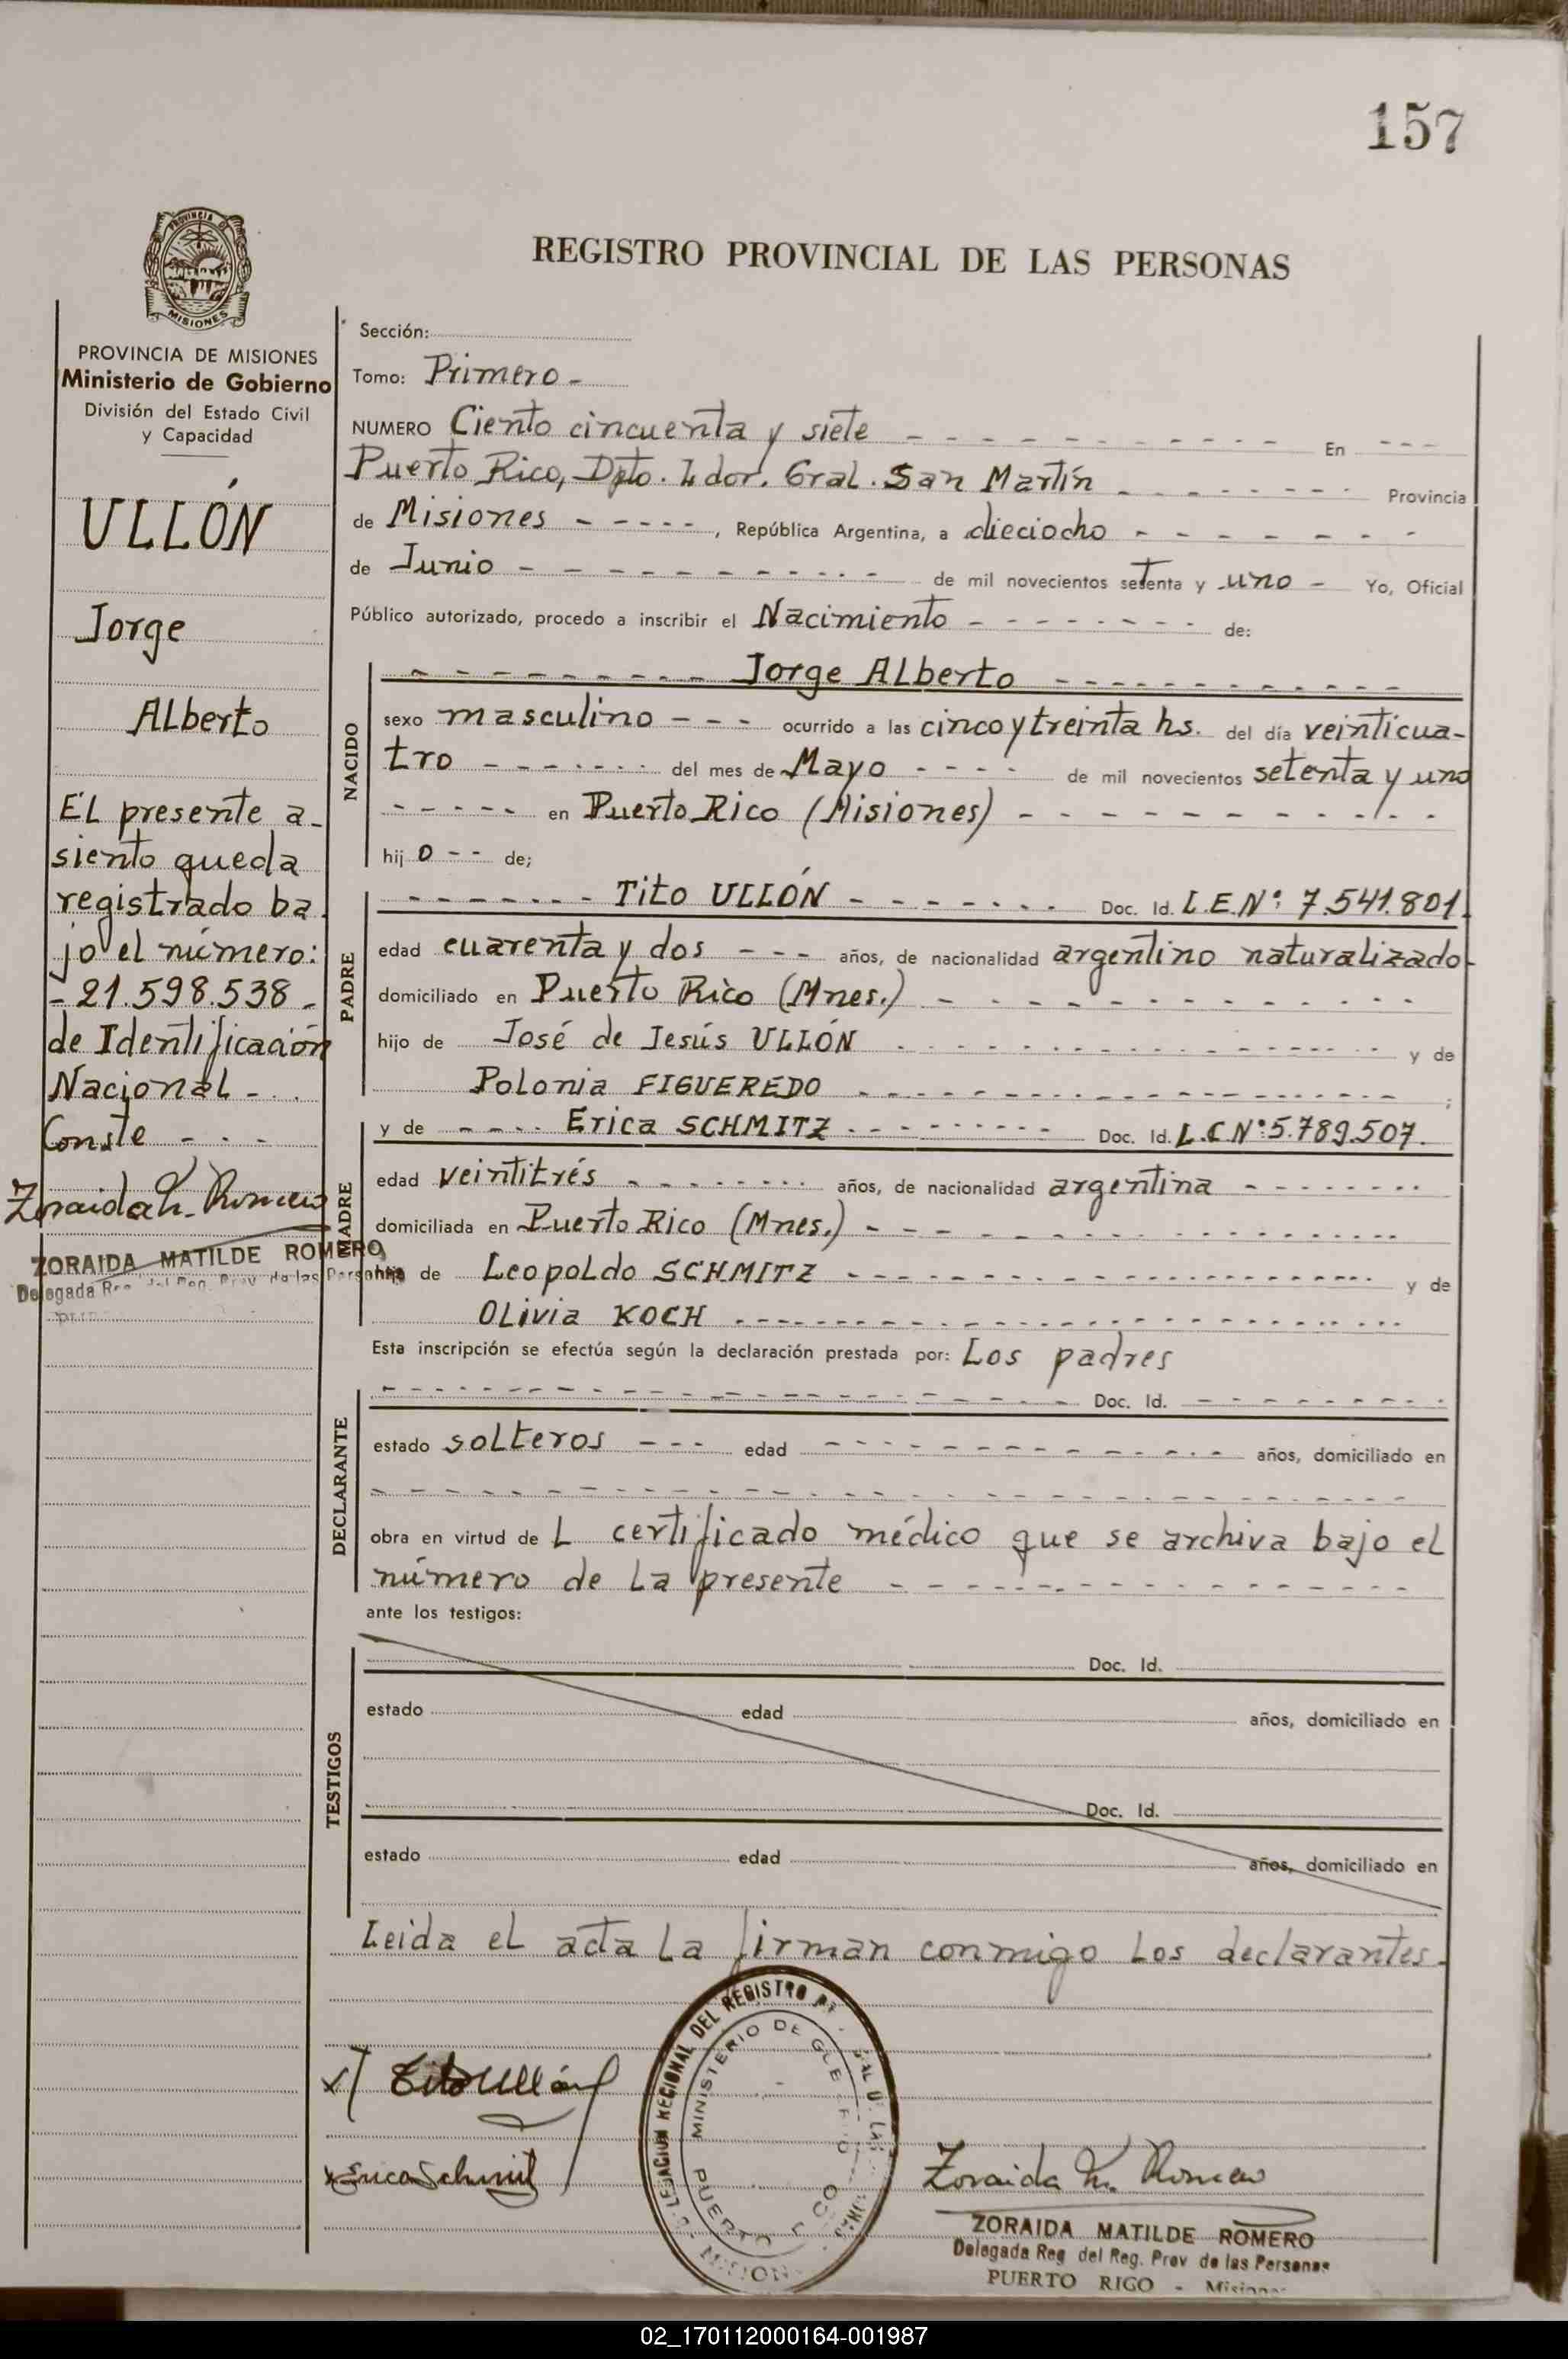 157
PROVINCIA DE
MISIONES
REGISTRO PROVINCIAL DE LAS PERSONAS
PROVINCIA DE MISIONES
Ministerio de Gobierno
División del Estado Civil
y Capacidad
ULLÓN
Jorge
Alberto
El presente a-
siento queda
registrado ba
jo el número:
- 21.598.538 -
de Identificación
Nacional - . .
Conste - - -
Zoraida M. Romero
ZORAIDA MATILDE ROMERO
Delegada Reg. del Reg. Prov. de las Personas
Sección:
Tomo: Primero -
NUMERO Ciento cincuenta y siete - - - En - - -
Puerto Rico, Dpto. Ldor. Gral. San Martín - - - Provincia
de Misiones - - - - -, República Argentina, a dieciocho - - -
de Junio - - - de mil novecientos setenta y uno - Yo, Oficial
Público autorizado, procedo a inscribir el Nacimiento - - - de:
NACIDO
- - - Jorge Alberto - - -
sexo masculino - - - ocurrido a las cinco y treinta hs. del día veinticua-
tro - - - del mes de Mayo - - - de mil novecientos setenta y uno
- - - en Puerto Rico (Misiones) - - -
hij o - - de;
PADRE
- - - Tito ULLÓN - - - Doc. Id. L.E.Nº: 7.541.801.
edad cuarenta y dos - - - años, de nacionalidad argentino naturalizado
domiciliado en Puerto Rico (Mnes.) - - -
hijo de José de Jesús ULLÓN - - - y de
Polonia FIGUEREDO - - - ;
MADRE
y de - - - Erica SCHMITZ - - - Doc. Id. L.C Nº: 5.789.507.
edad veintitrés - - - años, de nacionalidad argentina - - -
domiciliada en Puerto Rico (Mnes.) - - -
hija de Leopoldo SCHMITZ - - - y de
Olivia KOCH - - -
Esta inscripción se efectúa según la declaración prestada por: Los padres
DECLARANTE
- - - Doc. Id. - - -
estado solteros - - - edad - - - años, domiciliado en
- - -
obra en virtud de l certificado médico que se archiva bajo el
número de la presente - - -
ante los testigos:
TESTIGOS
Doc. Id.
estado edad años, domiciliado en
Doc. Id.
estado edad años, domiciliado en
Leida el acta la firman conmigo los declarantes.
x/ Tito Ullón
x Erica Schmitz
DELEGACION REGIONAL DEL REGISTRO
MINISTERIO DE
PUERTO
Zoraida M. Romero
ZORAIDA MATILDE ROMERO
Delegada Reg del Reg. Prov de las Personas
PUERTO RICO - Misiones
02_170112000164-001987